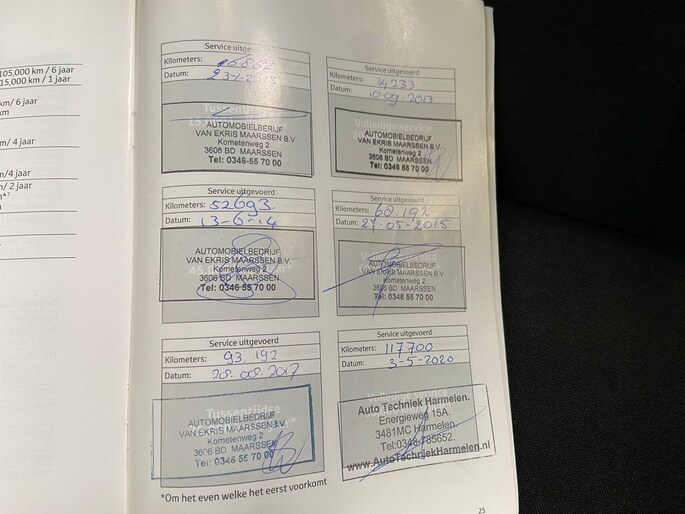 105,000 km / 6 jaar
15,000 km / 1 jaar
km/ 6 jaar
km
km/ 4 jaar
km/4 jaar
km/ 2 jaar
Service uitgevoerd
Kilometers:
Datum:
Tussentijdse
AUTOMOBIELBEDRIJF
VAN EKRIS MAARSSEN B.V.
Kometenweg 2
3606 BD MAARSSEN
Tel: 0346-55 70 00
Service uitgevoerd
Kilometers: 34233
Datum: 10-09-2013
Volledige service
AUTOMOBIELBEDRIJF
VAN EKRIS MAARSSEN B.V
Kometenweg 2
3606 BD MAARSSEN
Tel: 0346-55 70 00
Service uitgevoerd
Kilometers: 52693
Datum: 13-6-14
AUTOMOBIELBEDRIJF
VAN EKRIS MAARSSEN B.V.
Kometenweg 2
3606 BD MAARSSEN
Tel: 0346 55 70 00
Service uitgevoerd
Kilometers: 68.192
Datum: 27-05-2015
AUTOMOBIELBEDRIJF
VAN EKRIS MAARSSEN B.V.
Kometenweg 2
3606 BD MAARSSEN
Tel: 0346 55 70 00
Service uitgevoerd
Kilometers: 93.192
Datum: 2017
Tussentijdse
AUTOMOBIELBEDRIJF
VAN EKRIS MAARSSEN B.V.
Kometenweg 2
3606 BD MAARSSEN
Tel: 0346 55 70 00
Service uitgevoerd
Kilometers: 117700
Datum: 3-5-2020
Auto Techniek Harmelen.
Energieweg 15A.
3481MC Harmelen.
Tel:0348-785652.
www.AutoTechniekHarmelen.nl
*Om het even welke het eerst voorkomt
25